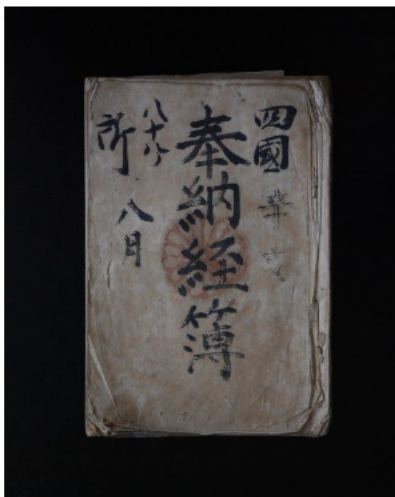 四國
奉納経簿
八十八
所 八月